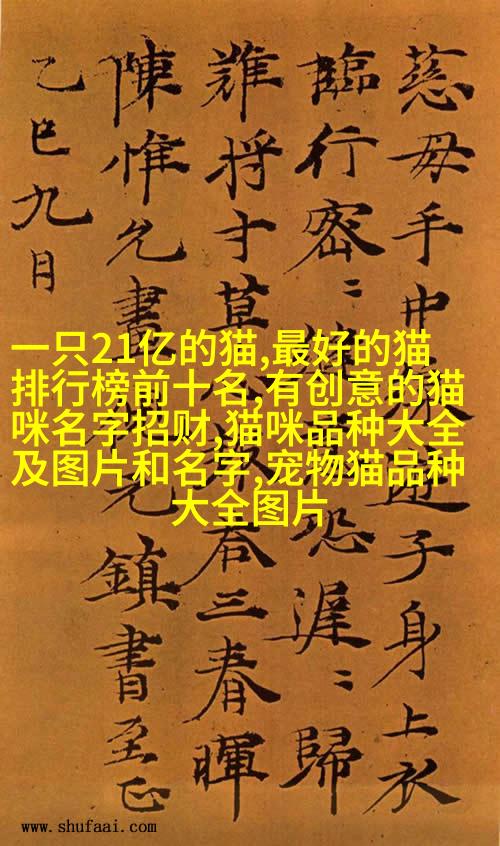 慈母手中遊子身上衣
臨行密〻縫恐遲〻歸
難将寸草報答三春暉
陳惟允書元鎮書至正
乙巳九月
一只21亿的猫,最好的猫
排行榜前十名,有创意的猫
咪名字招财,猫咪品种大全
及图片和名字,宠物猫品种
大全图片
www.shufaai.com